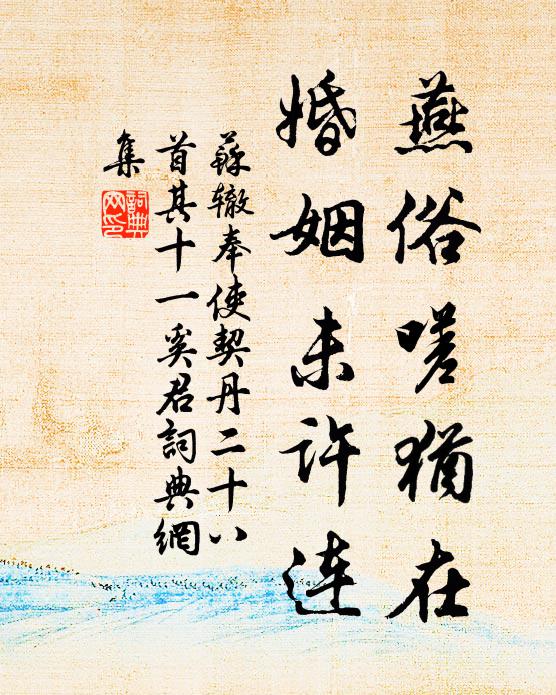 燕俗嗟猶在
婚姻未許連
蘇辙奉使契丹二十八
首其十一奚君詞典網
集
詞典
网印